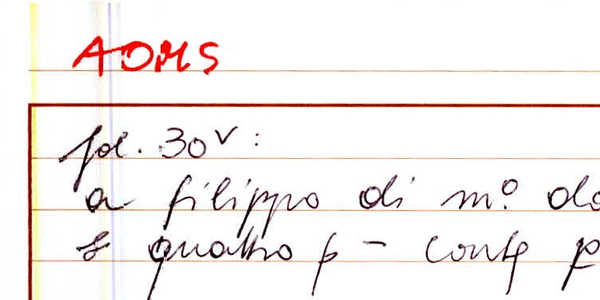 AOMS
fol. 30v:
a filippo di mo. do
quattro p - conte p